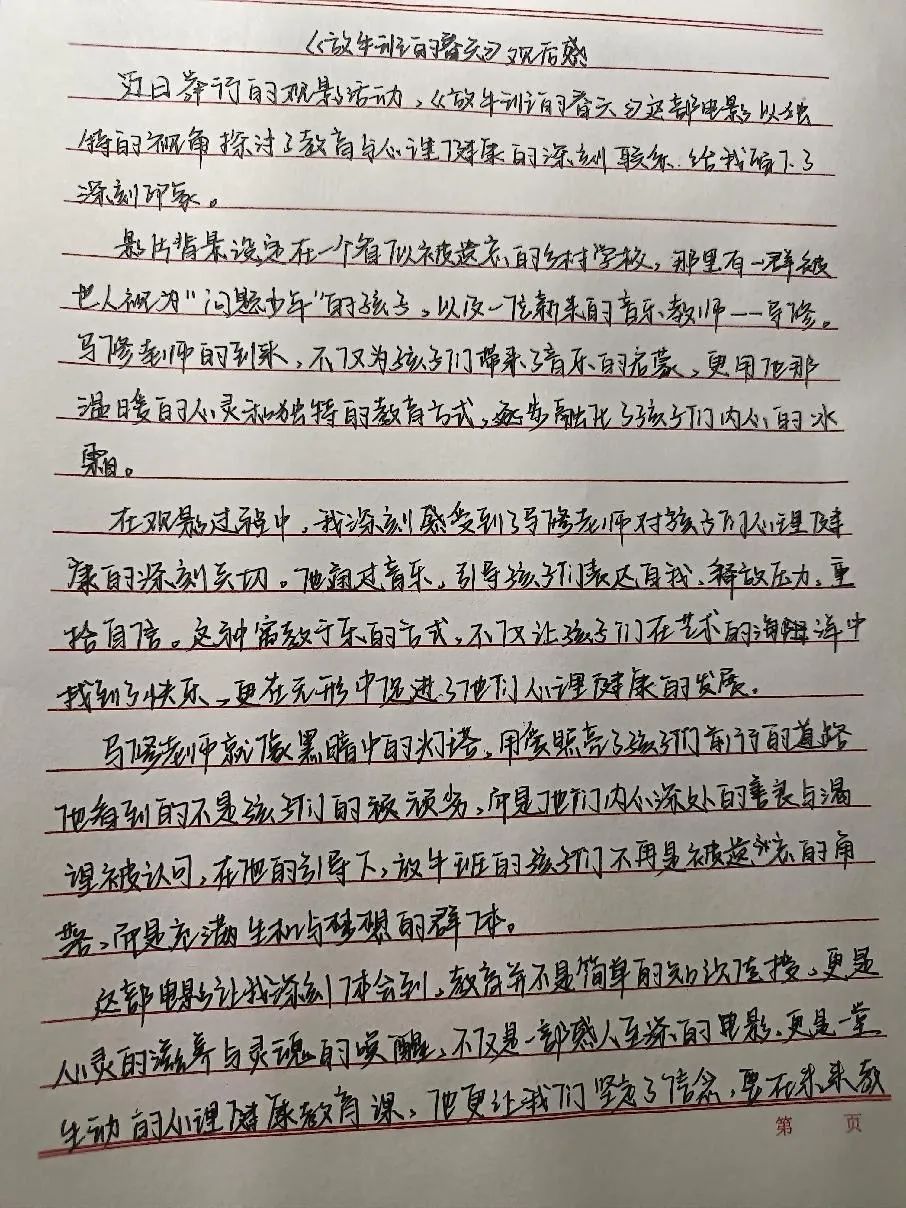 《放牛班的春天》观后感
近日举行的观影活动，《放牛班的春天》这部电影以独
特的视角探讨了教育与心理健康的深刻联系，给我留下了
深刻印象。
影片背景设定在一个看似被遗忘的乡村学校，那里有一群被
他人视为“问题少年”的孩子，以及一位新来的音乐教师——马修。
马修老师的到来，不仅为孩子们带来了音乐的启蒙，更用他那
温暖的心灵和独特的教育方式，逐步融化了孩子们内心的冰
霜。
在观影过程中，我深刻感受到了马修老师对孩子们心理健
康的深刻关切。他通过音乐，引导孩子们表达自我、释放压力，重
拾自信。这种寓教于乐的方式，不仅让孩子们在艺术的海洋中
找到了快乐，更在无形中促进了他们心理健康的发展。
马修老师就像黑暗中的灯塔，用爱照亮了孩子们前行的道路
他看到的不是孩子们的顽劣，而是他们内心深处的善良与渴
望被认可，在他的引导下，放牛班的孩子们不再是被遗忘的角
落，而是充满生机与梦想的群体。
这部电影让我深刻体会到，教育并不是简单的知识传授，更是
心灵的滋养与灵魂的唤醒，不仅是一部感人至深的电影，更是一堂
生动的心理健康教育课，他更让我们坚定了信念，要在未来教
第 页